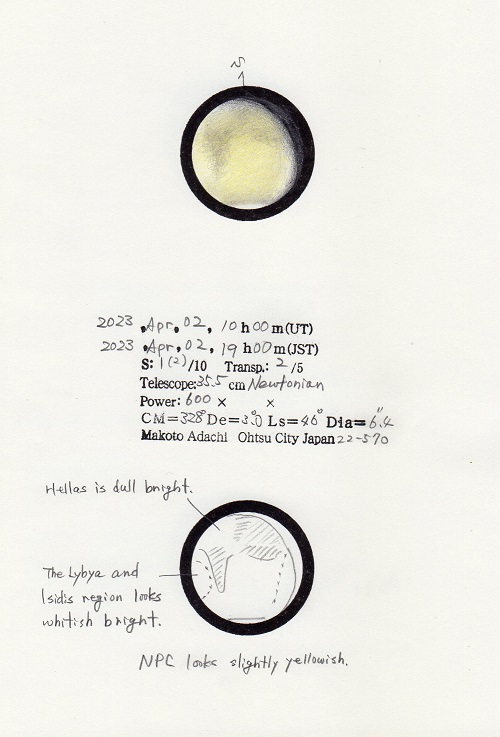 S
2023 Apr. 02, 10h00m(UT)
2023 Apr. 02, 19h00m(JST)
S: 1(2)/10 Transp.: 2/5
Telescope: 35.5 cm Newtonian
Power: 600 × ×
CM=328° De=3.°0 Ls=46° Dia=6."4
Makoto Adachi Ohtsu City Japan 22-570
Hellas is dull bright.
The Lybya and
Isidis region looks
whitish bright.
NPC looks slightly yellowish.